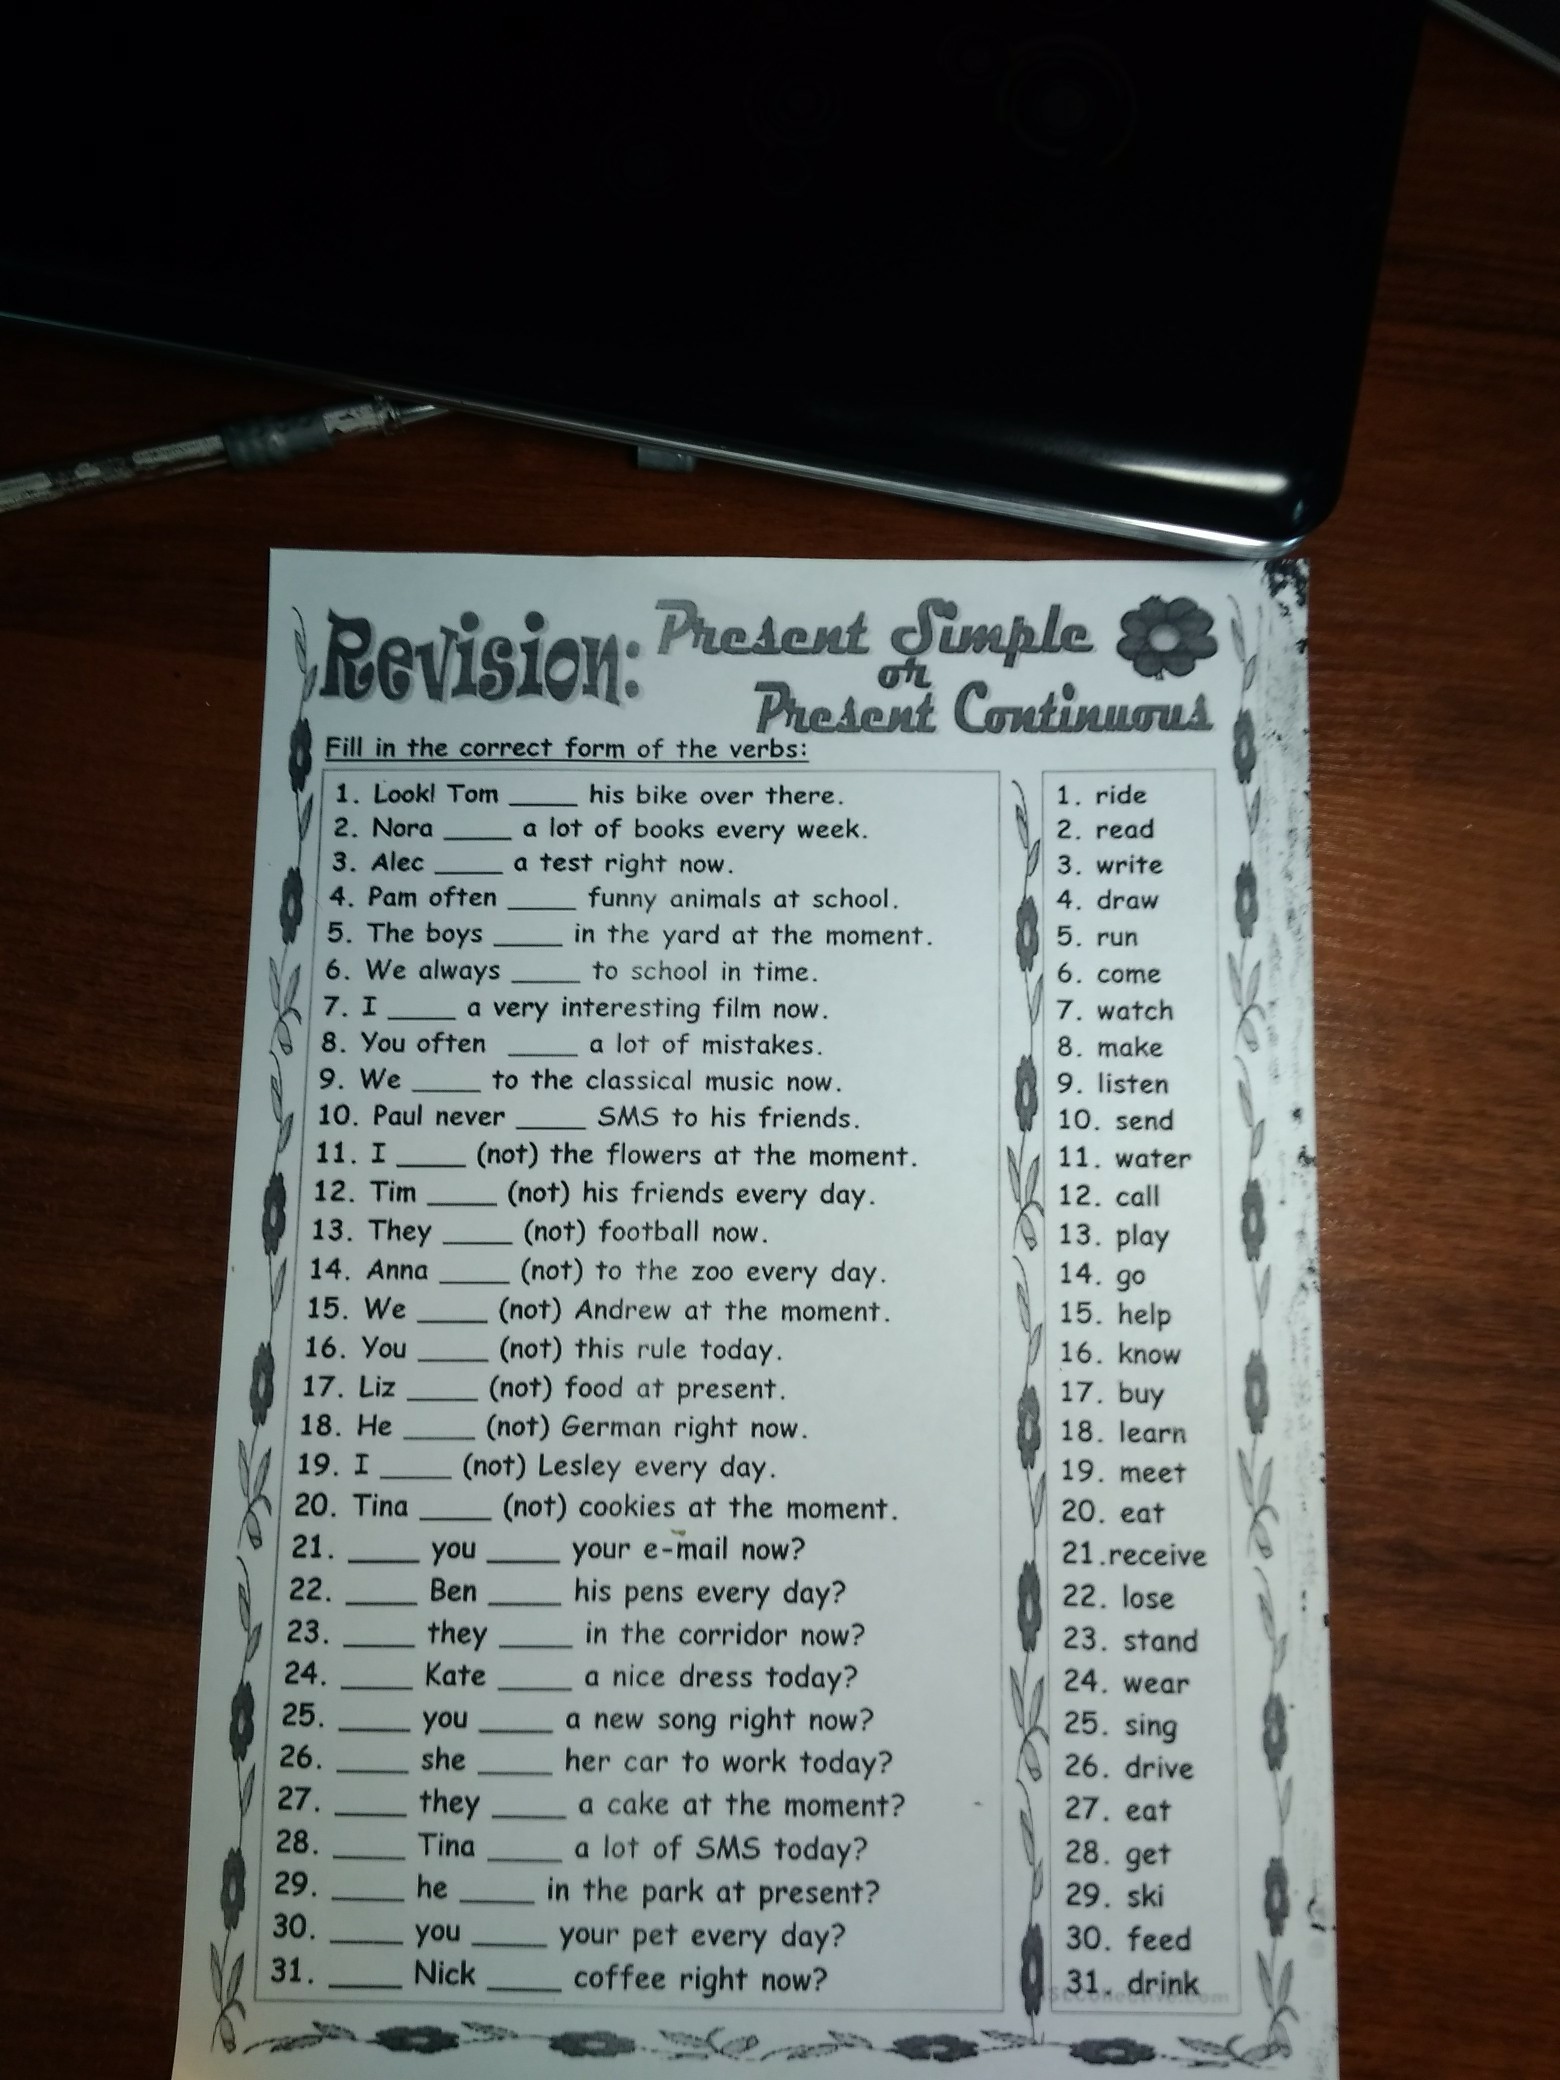 Revision: Present Simple
or
Present Continuous
Fill in the correct form of the verbs:
1. Look! Tom _____ his bike over there.
2. Nora _____ a lot of books every week.
3. Alec _____ a test right now.
4. Pam often _____ funny animals at school.
5. The boys _____ in the yard at the moment.
6. We always _____ to school in time.
7. I _____ a very interesting film now.
8. You often _____ a lot of mistakes.
9. We _____ to the classical music now.
10. Paul never _____ SMS to his friends.
11. I _____ (not) the flowers at the moment.
12. Tim _____ (not) his friends every day.
13. They _____ (not) football now.
14. Anna _____ (not) to the zoo every day.
15. We _____ (not) Andrew at the moment.
16. You _____ (not) this rule today.
17. Liz _____ (not) food at present.
18. He _____ (not) German right now.
19. I _____ (not) Lesley every day.
20. Tina _____ (not) cookies at the moment.
21. _____ you _____ your e-mail now?
22. _____ Ben _____ his pens every day?
23. _____ they _____ in the corridor now?
24. _____ Kate _____ a nice dress today?
25. _____ you _____ a new song right now?
26. _____ she _____ her car to work today?
27. _____ they _____ a cake at the moment?
28. _____ Tina _____ a lot of SMS today?
29. _____ he _____ in the park at present?
30. _____ you _____ your pet every day?
31. _____ Nick _____ coffee right now?
1. ride
2. read
3. write
4. draw
5. run
6. come
7. watch
8. make
9. listen
10. send
11. water
12. call
13. play
14. go
15. help
16. know
17. buy
18. learn
19. meet
20. eat
21.receive
22. lose
23. stand
24. wear
25. sing
26. drive
27. eat
28. get
29. ski
30. feed
31. drink